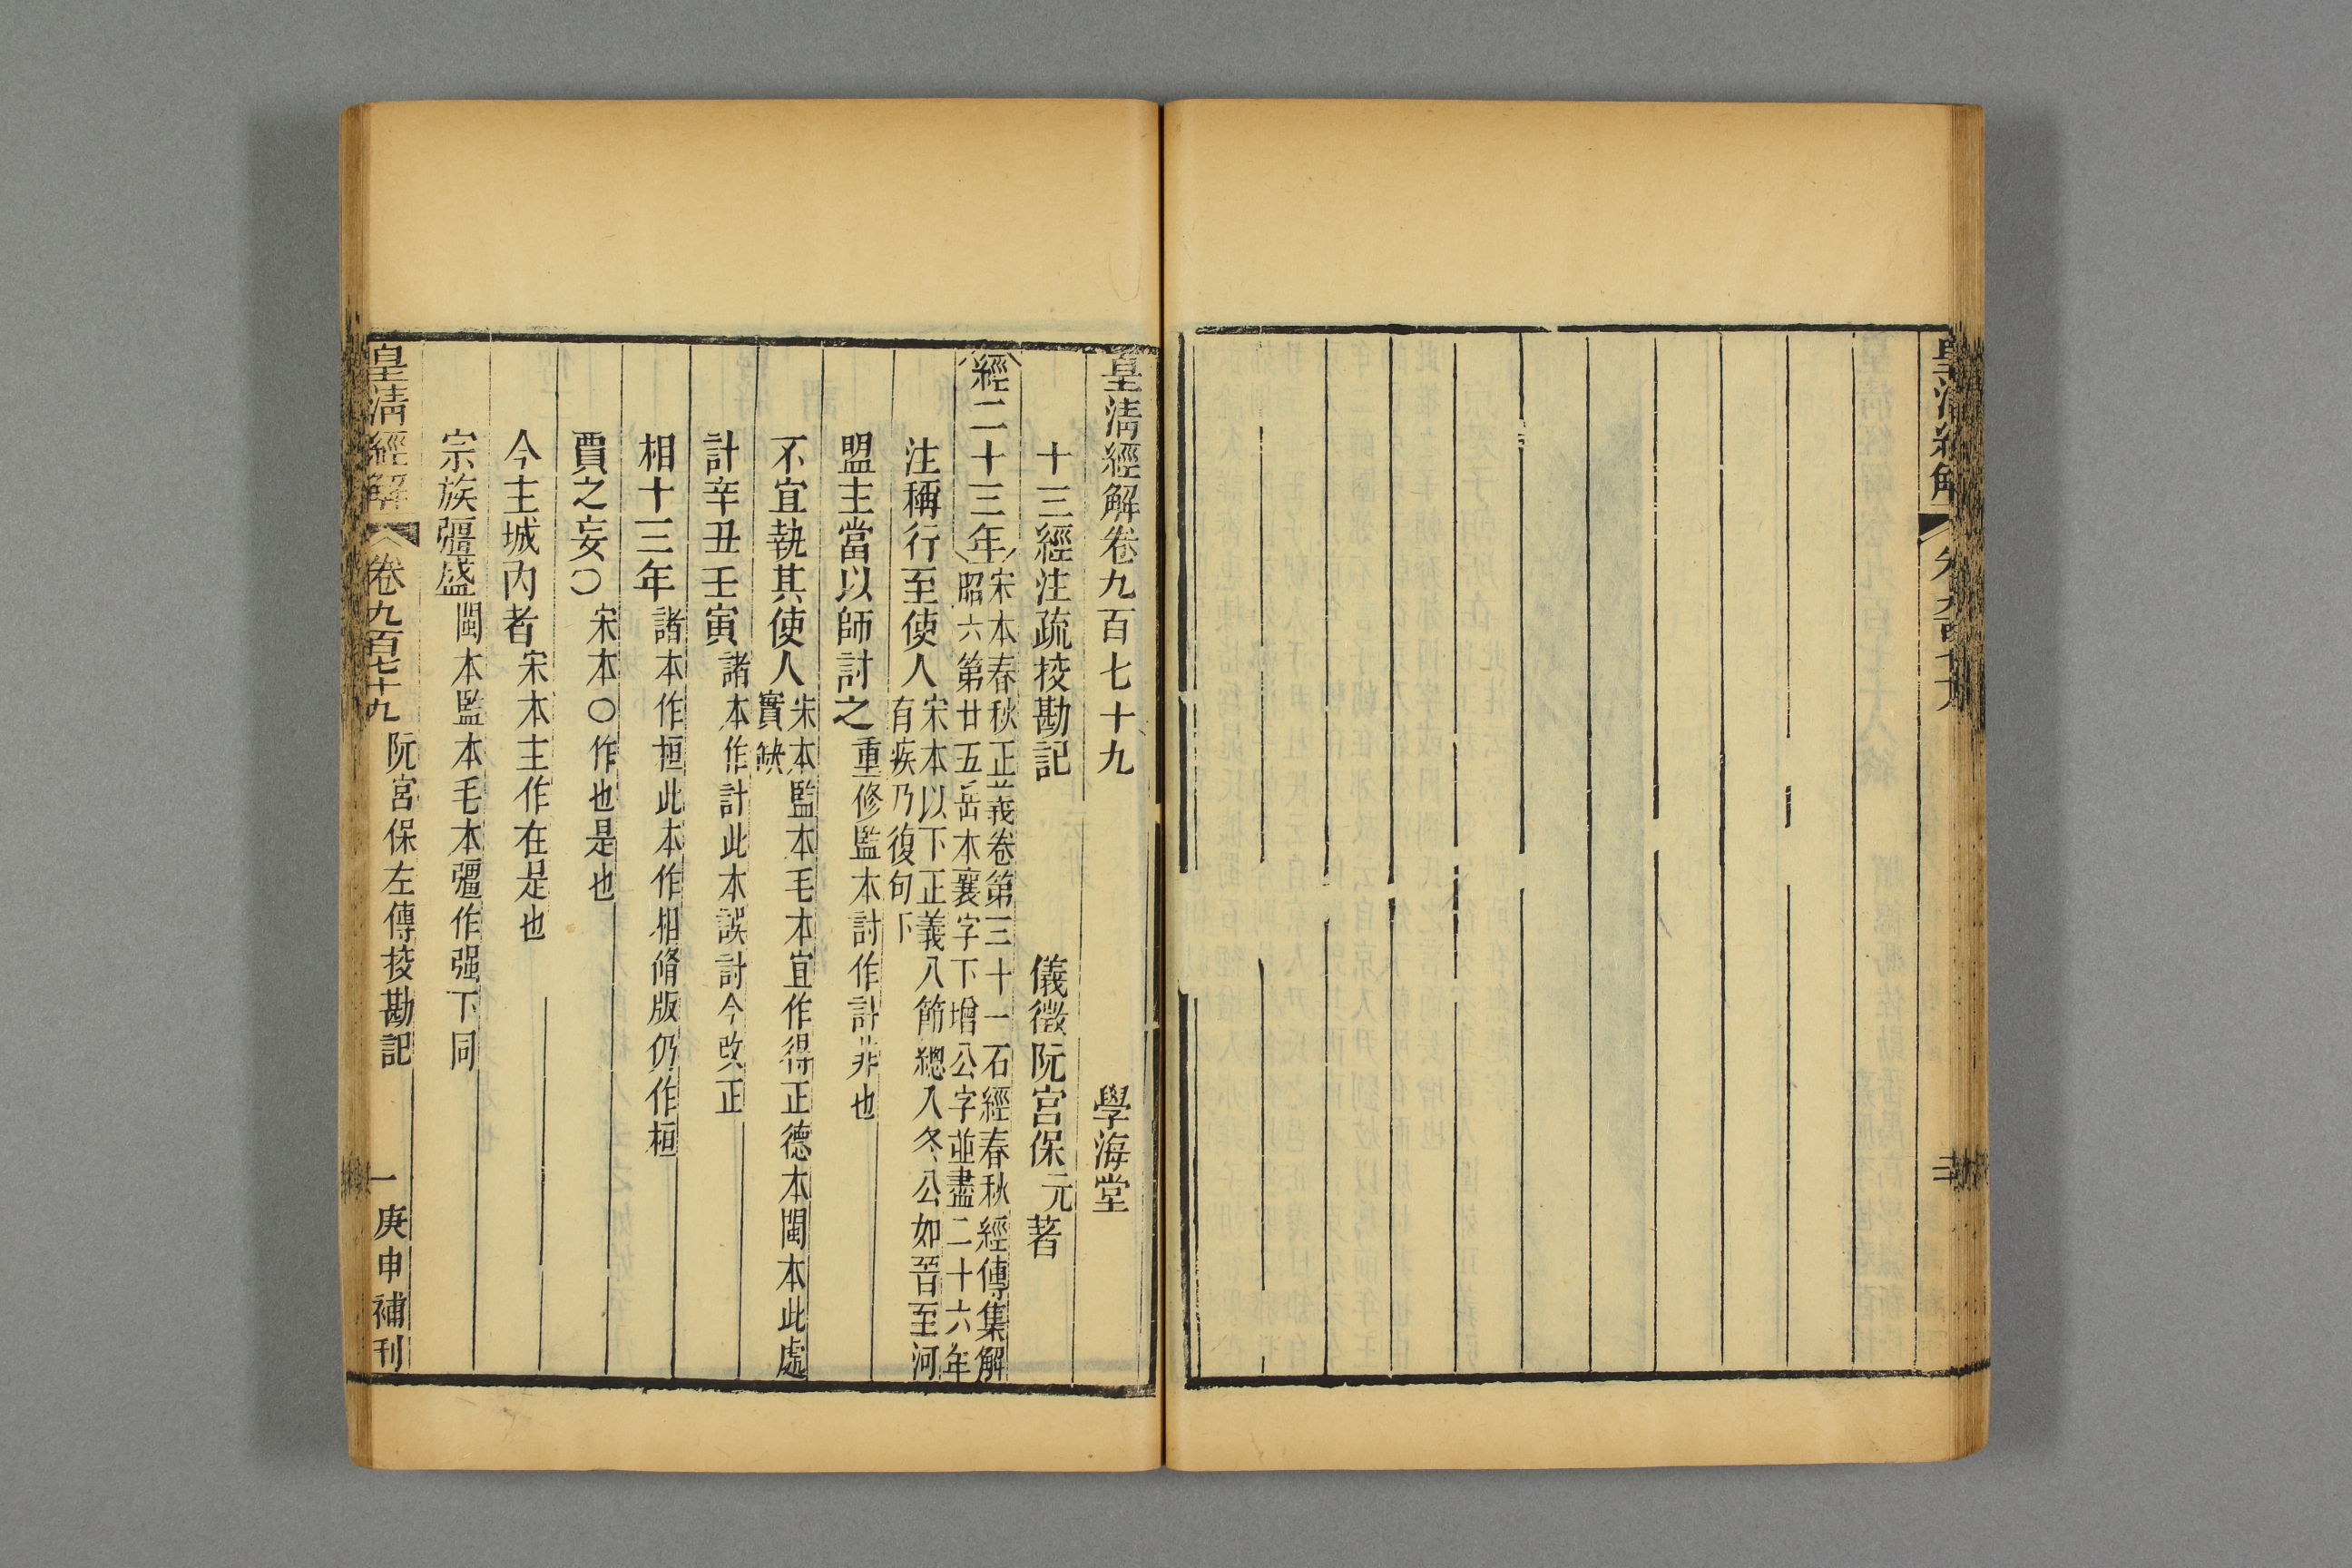 皇清經解卷九百七十九 學海堂
十三經注疏挍勘記 儀徵阮宮保元著
經二十三年
宋本春秋正義卷第三十一石經春秋經傳集解
昭六第廿五岳本襄字下增公字並盡二十六年
注稱行至使人
宋本以下正義八節總入冬公如晉至河
有疾乃復句下
盟主當以師討之重修監本討作計非也
不宜執其使人
宋本監本毛本宜作得正德本閩本此處
實缺
計辛丑壬寅諸本作計此本誤討今改正
相十三年諸本作桓此本作相脩版仍作桓
賈之妄〇宋本〇作也是也
今主城內者宋本主作在是也
宗族彊盛閩本監本毛本彊作强下同
皇清經解 卷九百七十九 阮宮保左傳挍勘記 一 庚申補刊